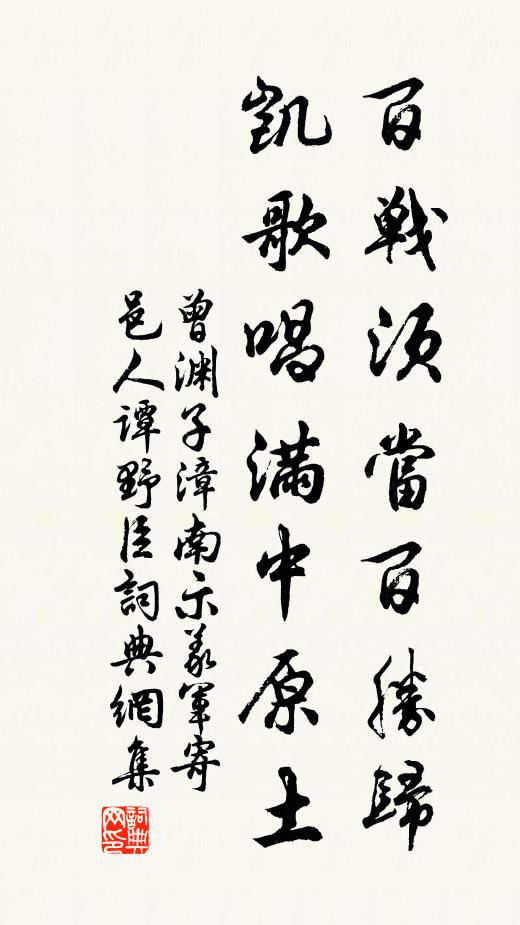 百戰須當百勝歸
凱歌唱滿中原土
曾渊子漳南示義軍寄
邑人譚野臣詞典網集
詞典网印